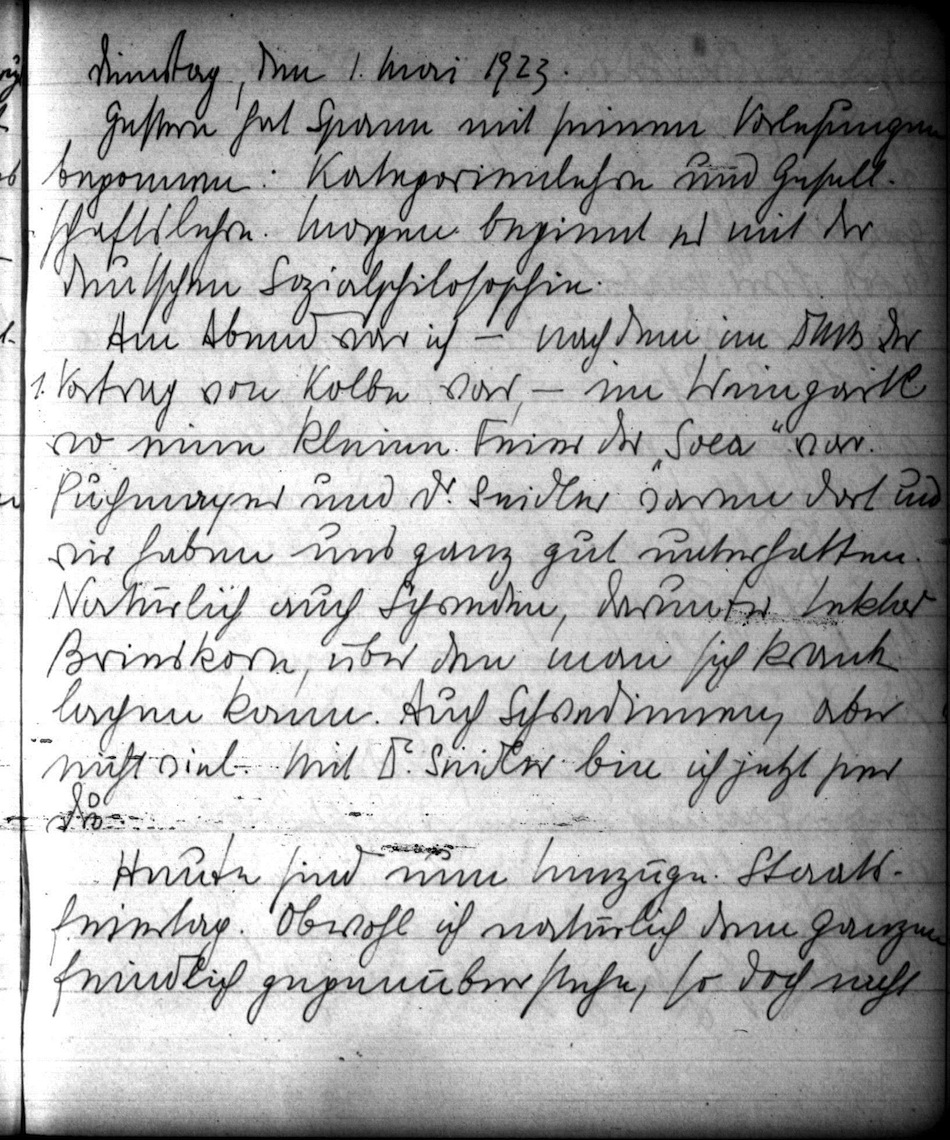 Dienstag, den 1. Mai 1923.
Gestern hat Spann mit seinen Vorlesungen
begonnen: Kategorienlehre und Gesell-
schaftslehre. Morgen beginnt er mit der
deutschen Sozialphilosophie.
Am Abend war ich – nachdem im der
1. Vortrag von Kolbe war, – im Weingartl
wo eine kleine Feier der „Soca“ war.
Puchmayer und Dr. Seidler waren dort und
wir haben uns ganz gut unterhalten.
Natürlich auch Schweden, darunter Lektor
Brieskorn, über den man sich krank
lachen kann. Auch Schwedinnen, aber
nicht viel. Mit Dr. Seidler bin ich jetzt per
du.
Heute sind nun Umzüge. Staats-
feiertag. Obwohl ich natürlich dem ganzen
feindlich gegenüberstehe, so doch nicht